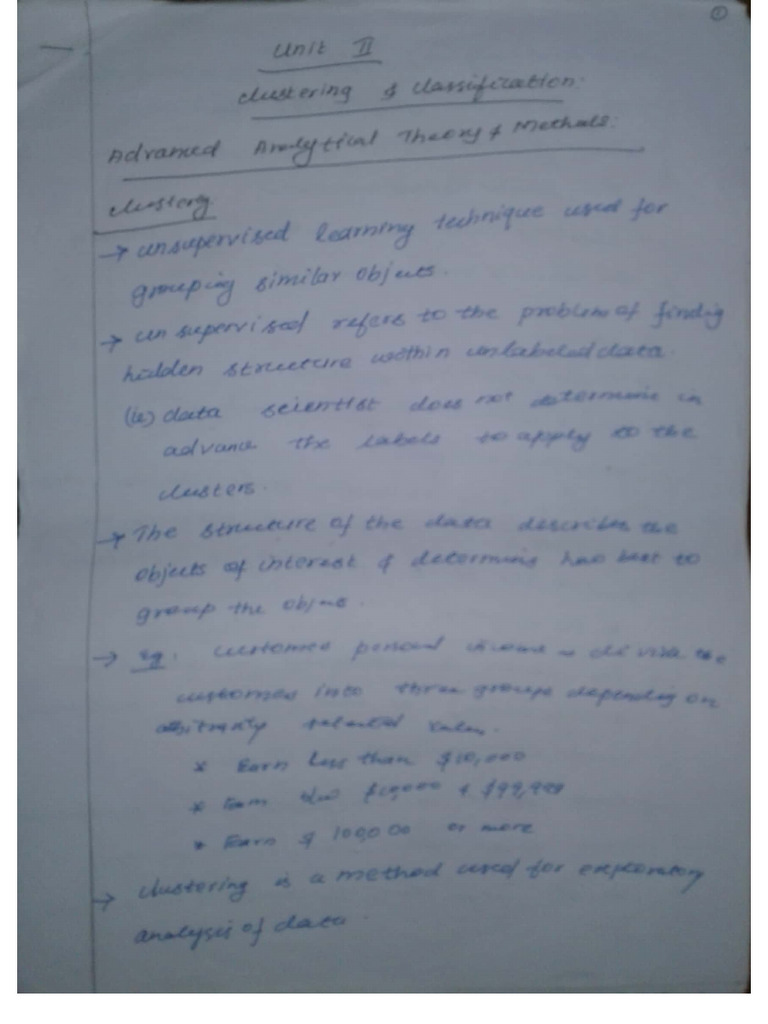 1
Unit II
Clustering & Classification.
Advanced Analytical Theory & Methods.
Clustering
→ unsupervised learning technique used for
grouping similar objects.
→ un supervised refers to the problem of finding
hidden structure within unlabeled data.
(ie) data scientist does not determine in
advance the labels to apply to the
clusters.
→ The structure of the data describes the
objects of interest & determines how best to
group the objects.
→ eg. customer personal income divide the
customers into three groups depending on
arbitrarily selected values.
* Earn less than $10,000
* Earn b/w $10,000 & $99,999
* Earn $ 100,000 or more
→ clustering is a method used for exploratory
analysis of data.